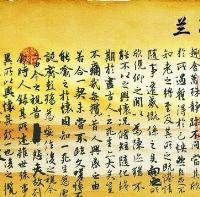 兰
殊靜躁不同當
於所遇暫得於己快然自足
知老之將至及其所之既惓
隨事遷感慨係之矣向之所
欣俛仰之閒以為陳迹猶不
能不以之興懷況脩短隨化終
期於盡古人云死生亦大矣
不痛哉每攬昔人興感之由
若合一契未嘗不臨文嗟悼不
能喻之於懷固知一死生為虛
誕齊彭殤為妄作後之視
今之視昔悲夫故列
敘時人錄其所述雖世殊事
異所以興懷其致一也後之攬